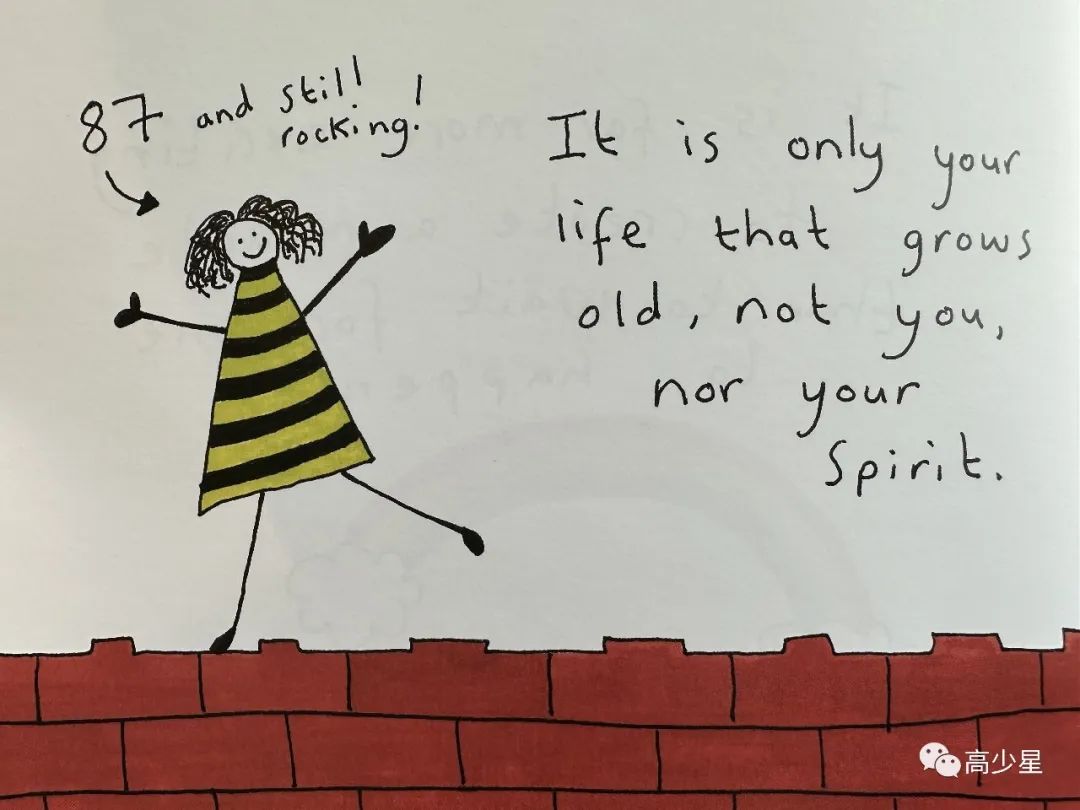 87 and still
rocking!
It is only your
life that grows
old, not you,
nor your
Spirit.
高少星